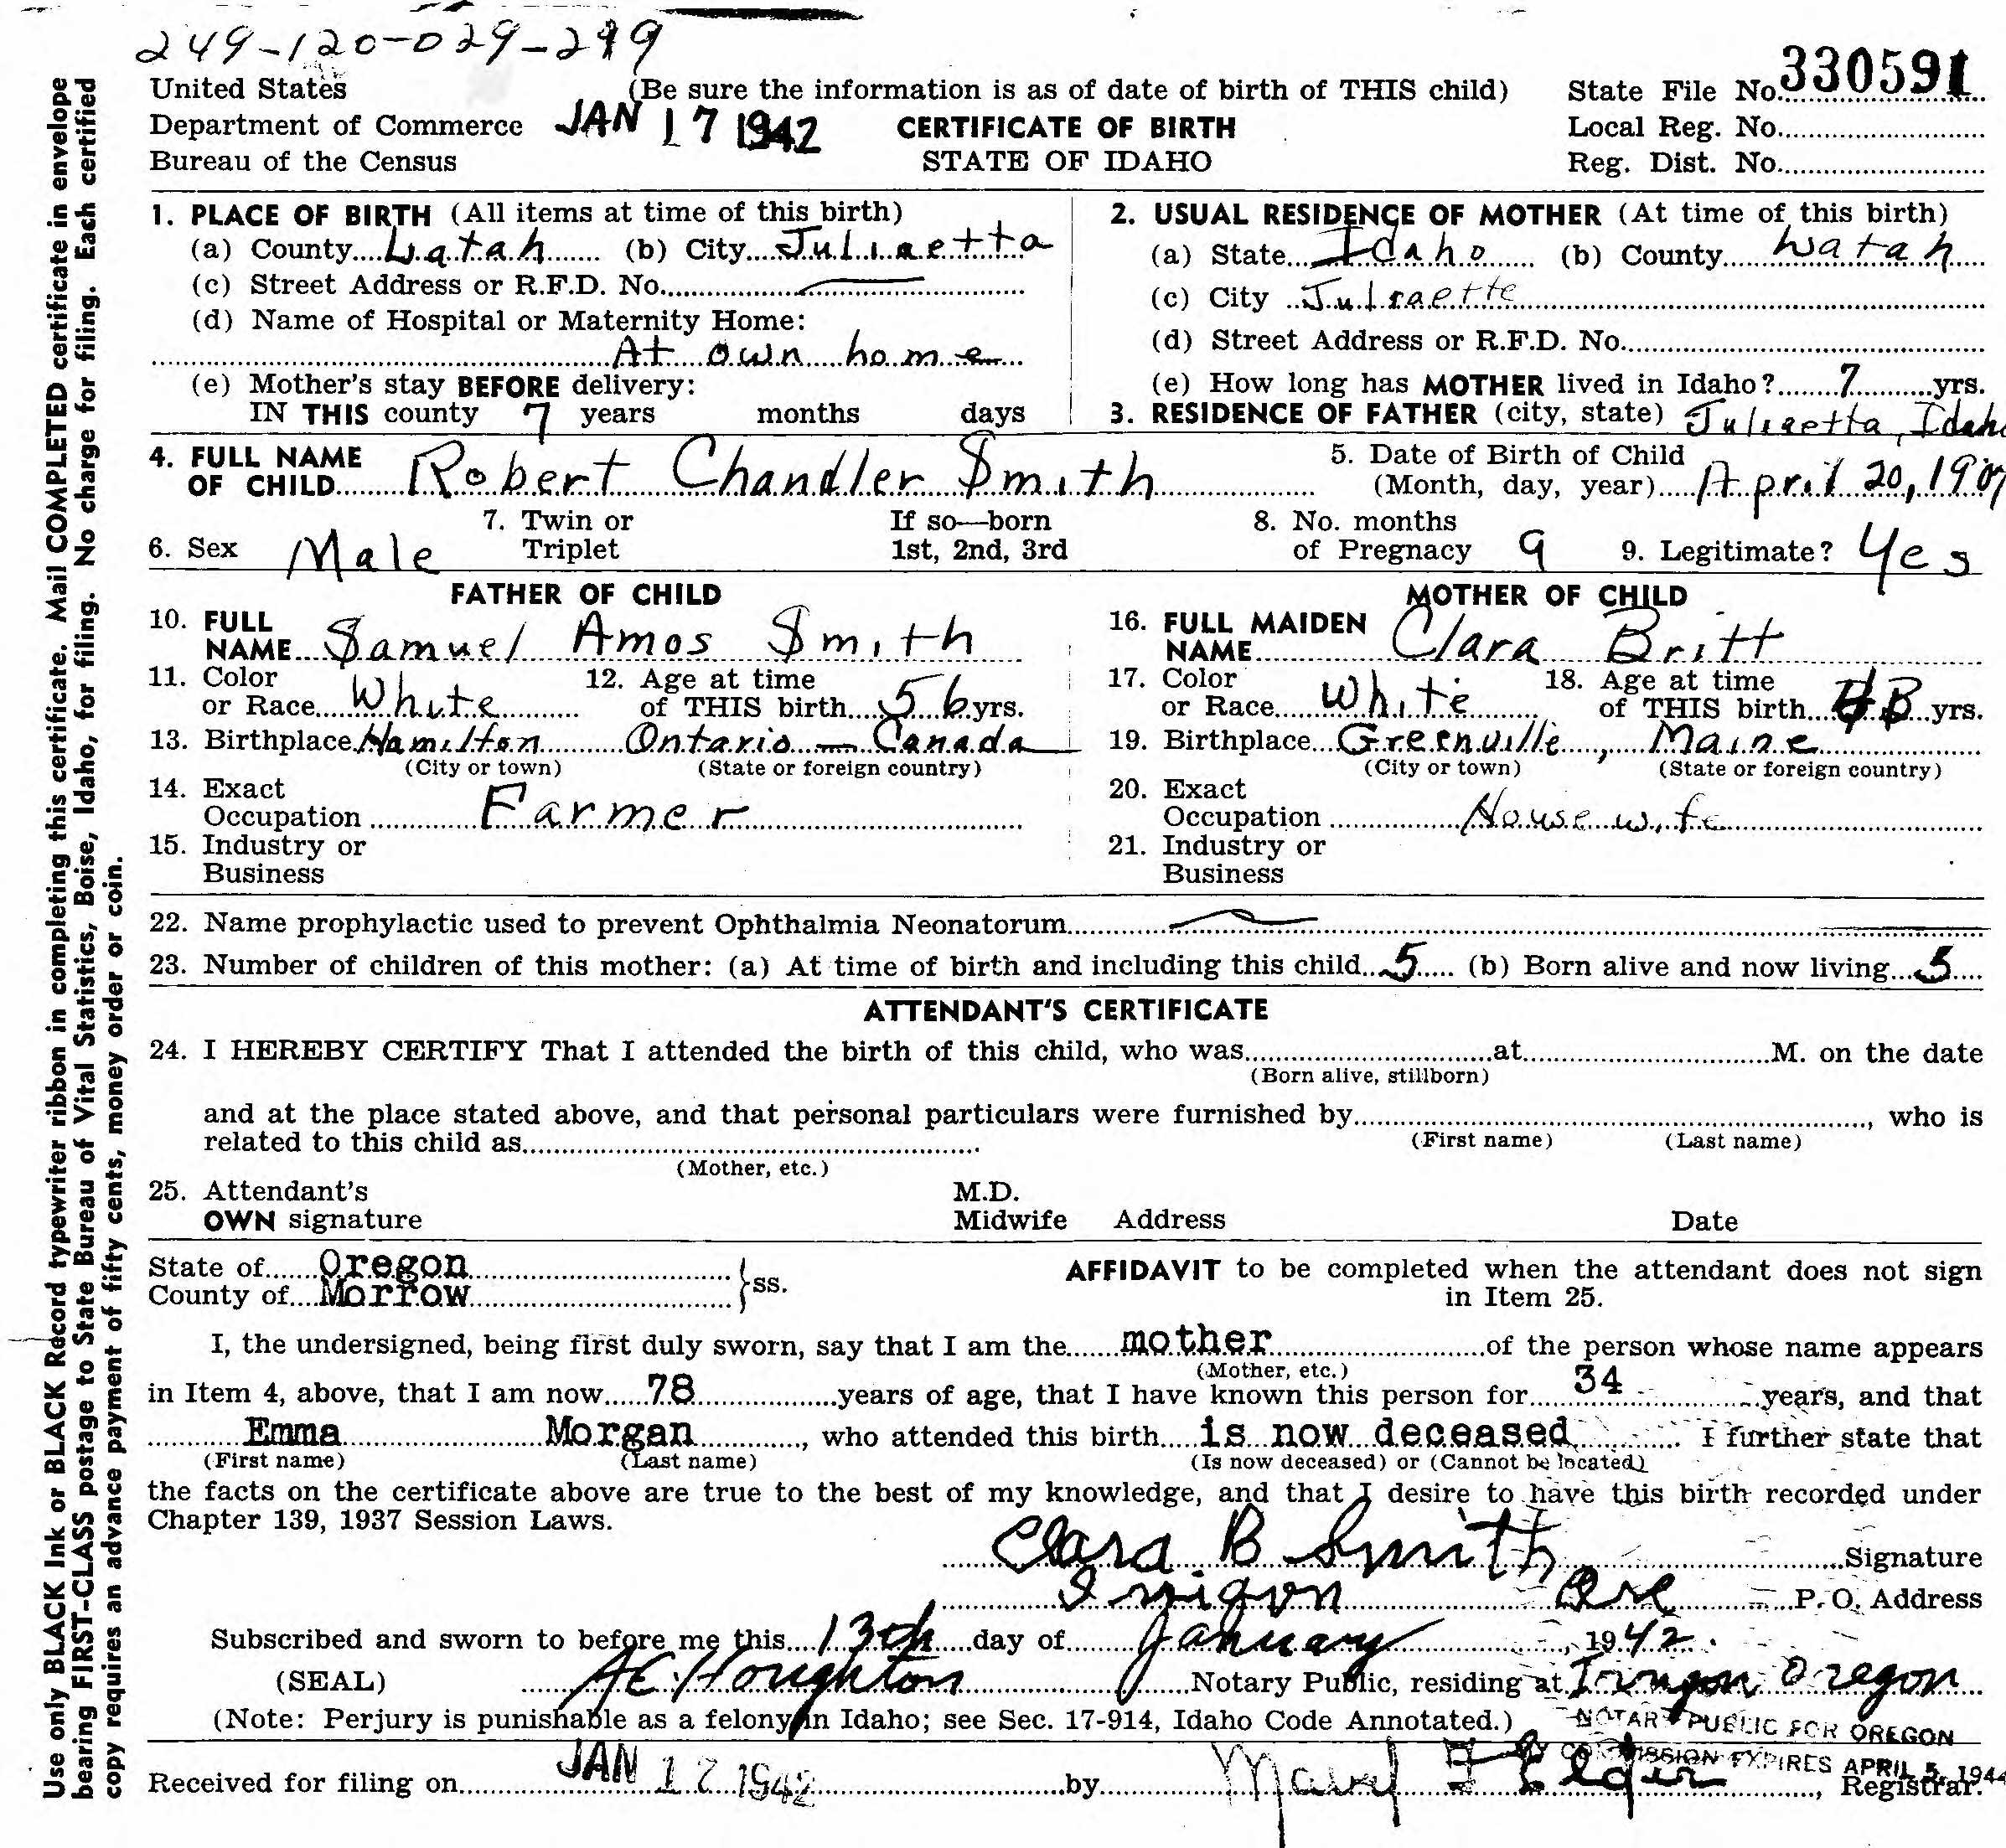 249-120-029-299
United States (Be sure the information is as of date of birth of THIS child) State File No. 330591
Department of Commerce JAN 17 1942 CERTIFICATE OF BIRTH Local Reg. No.
Bureau of the Census STATE OF IDAHO Reg. Dist. No.
1. PLACE OF BIRTH (All items at time of this birth)
(a) County Latah (b) City Juliaetta
(c) Street Address or R.F.D. No. —
(d) Name of Hospital or Maternity Home:
At own home
(e) Mother's stay BEFORE delivery:
IN THIS county 7 years months days
2. USUAL RESIDENCE OF MOTHER (At time of this birth)
(a) State Idaho (b) County Latah
(c) City Juliaette
(d) Street Address or R.F.D. No.
(e) How long has MOTHER lived in Idaho? 7 yrs.
3. RESIDENCE OF FATHER (city, state) Juliaetta, Idaho
4. FULL NAME
OF CHILD Robert Chandler Smith
5. Date of Birth of Child
(Month, day, year) April 20, 1907
6. Sex Male
7. Twin or
Triplet
If so—born
1st, 2nd, 3rd
8. No. months
of Pregnacy 9
9. Legitimate? Yes
FATHER OF CHILD
10. FULL
NAME Samuel Amos Smith
11. Color
or Race White
12. Age at time
of THIS birth 56 yrs.
13. Birthplace Hamilton Ontario — Canada
(City or town) (State or foreign country)
14. Exact
Occupation Farmer
15. Industry or
Business
MOTHER OF CHILD
16. FULL MAIDEN
NAME Clara Britt
17. Color
or Race White
18. Age at time
of THIS birth yrs.
19. Birthplace Greenville, Maine
(City or town) (State or foreign country)
20. Exact
Occupation Housewife
21. Industry or
Business
22. Name prophylactic used to prevent Ophthalmia Neonatorum
23. Number of children of this mother: (a) At time of birth and including this child 5 (b) Born alive and now living 5
ATTENDANT'S CERTIFICATE
24. I HEREBY CERTIFY That I attended the birth of this child, who was at M. on the date
(Born alive, stillborn)
and at the place stated above, and that personal particulars were furnished by , who is
(First name) (Last name)
related to this child as
(Mother, etc.)
25. Attendant's M.D.
OWN signature Midwife Address Date
State of Oregon
County of Morrow }ss.
AFFIDAVIT to be completed when the attendant does not sign
in Item 25.
I, the undersigned, being first duly sworn, say that I am the mother of the person whose name appears
(Mother, etc.)
in Item 4, above, that I am now 78 years of age, that I have known this person for 34 years, and that
Emma Morgan, who attended this birth is now deceased. I further state that
(First name) (Last name) (Is now deceased) or (Cannot be located)
the facts on the certificate above are true to the best of my knowledge, and that I desire to have this birth recorded under
Chapter 139, 1937 Session Laws.
Clara B Smith Signature
Irrigon Ore P. O. Address
Subscribed and sworn to before me this 13th day of January, 1942.
(SEAL) A E Houghton Notary Public, residing at Irrigon Oregon
(Note: Perjury is punishable as a felony in Idaho; see Sec. 17-914, Idaho Code Annotated.)
NOTARY PUBLIC FOR OREGON
MY COMMISSION EXPIRES APRIL 5, 1944
Received for filing on JAN 17 1942 by Mabel F Elder, Registrar.
Use only BLACK Ink or BLACK Record typewriter ribbon in completing this certificate. Mail COMPLETED certificate in envelope
bearing FIRST-CLASS postage to State Bureau of Vital Statistics, Boise, Idaho, for filing. No charge for filing. Each certified
copy requires an advance payment of fifty cents, money order or coin.